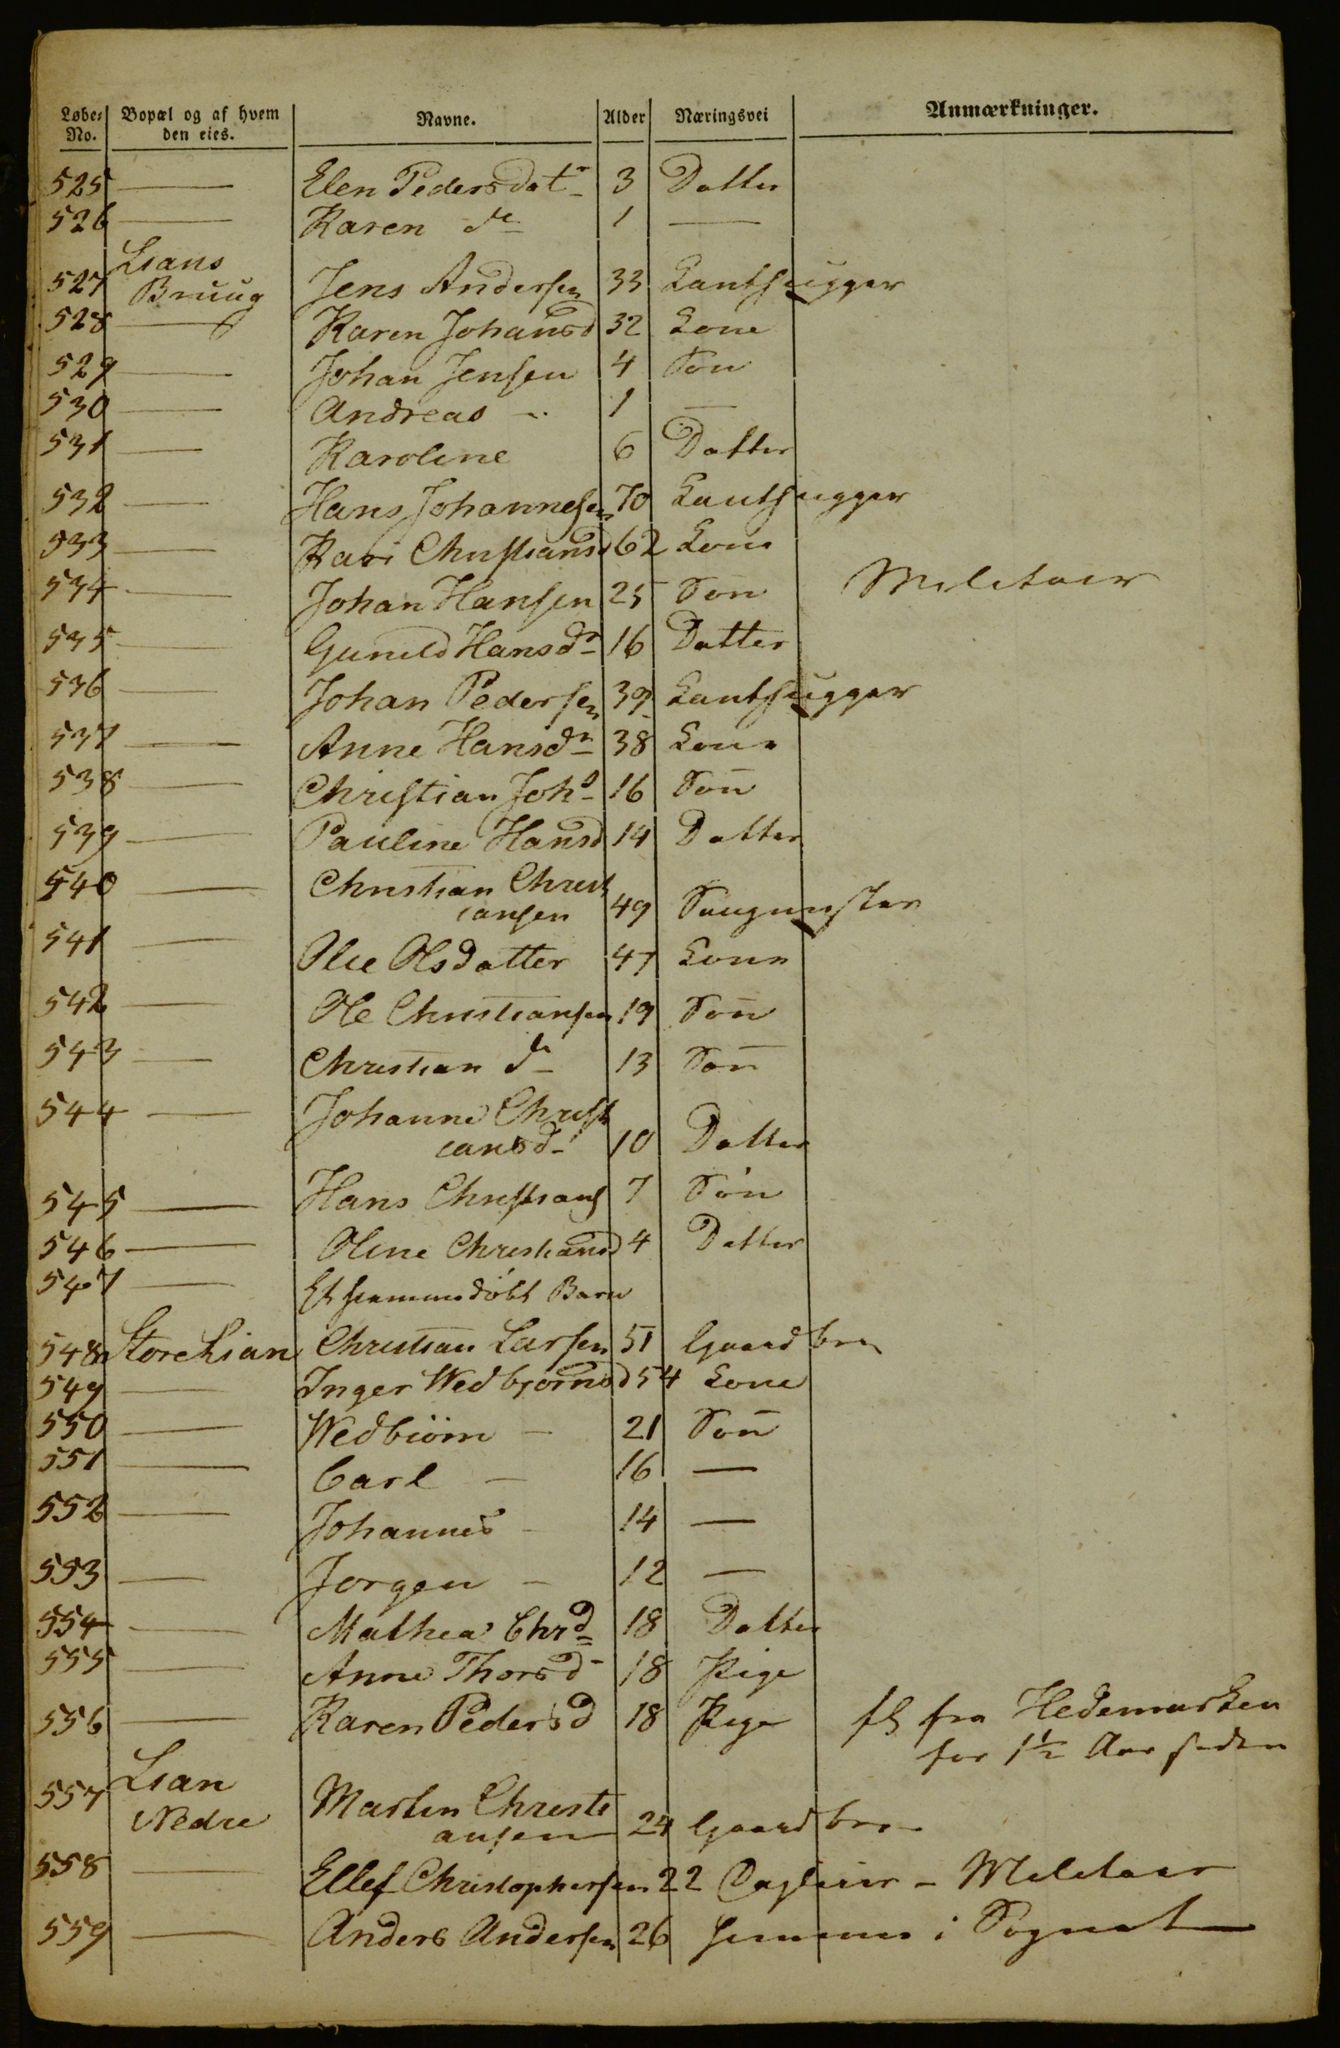 Løbe- No. Bopæl og af hvem den eies. Navne. Alder Næringsvei Anmærkninger.
525 — Elen Pedersdatr 3 Datter
526 — Karen do 1 —
527 Lians Bruug Jens Andersen 33 Kanthugger
528 — Karen Johansd 32 Kone
529 — Johan Jensen 4 Søn
530 — Andreas - 1 —
531 — Karoline 6 Datter
532 — Hans Johannesen 70 Kanthugger
533 — Kari Christiansd 62 Kone
534 — Johan Hansen 25 Søn Militair
535 — Gunild Hansdr 16 Datter
536 — Johan Pedersen 39 Kanthugger
537 — Anne Hansdr 38 Kone
538 — Christian Johs 16 Søn
539 — Pauline Hansd 14 Datter
540 — Christian Christ
iansen 49 Saugmester
541 — Olie Olsdatter 47 Kone
542 — Ole Christiansen 19 Søn
543 — Christian do 13 Søn
544 — Johanne Christ
iansd 10 Datter
545 — Hans Christians 7 Søn
546 — Oline Christiansd 4 Datter
547 — Et hiemmedøbt Barn
548 Store Lian Christian Larsen 51 Gaardbr
549 — Inger Wedbjornsd 54 Kone
550 — Wedbiørn - 21 Søn
551 — Carl - 16 —
552 — Johannes - 14 —
553 — Jorgen - 12 —
554 — Mathea Chrd 18 Datter
555 — Anne Thorsd 18 Pige
556 — Karen Pedersd 18 Pige fl fra Hedemarken
for 1½ Aar siden
557 Lian Nedre Martin Christi
ansen 24 Gaardbr
558 — Ellef Christophersen 22 Militair
559 — Anders Andersen 26 hiemme i Sognet